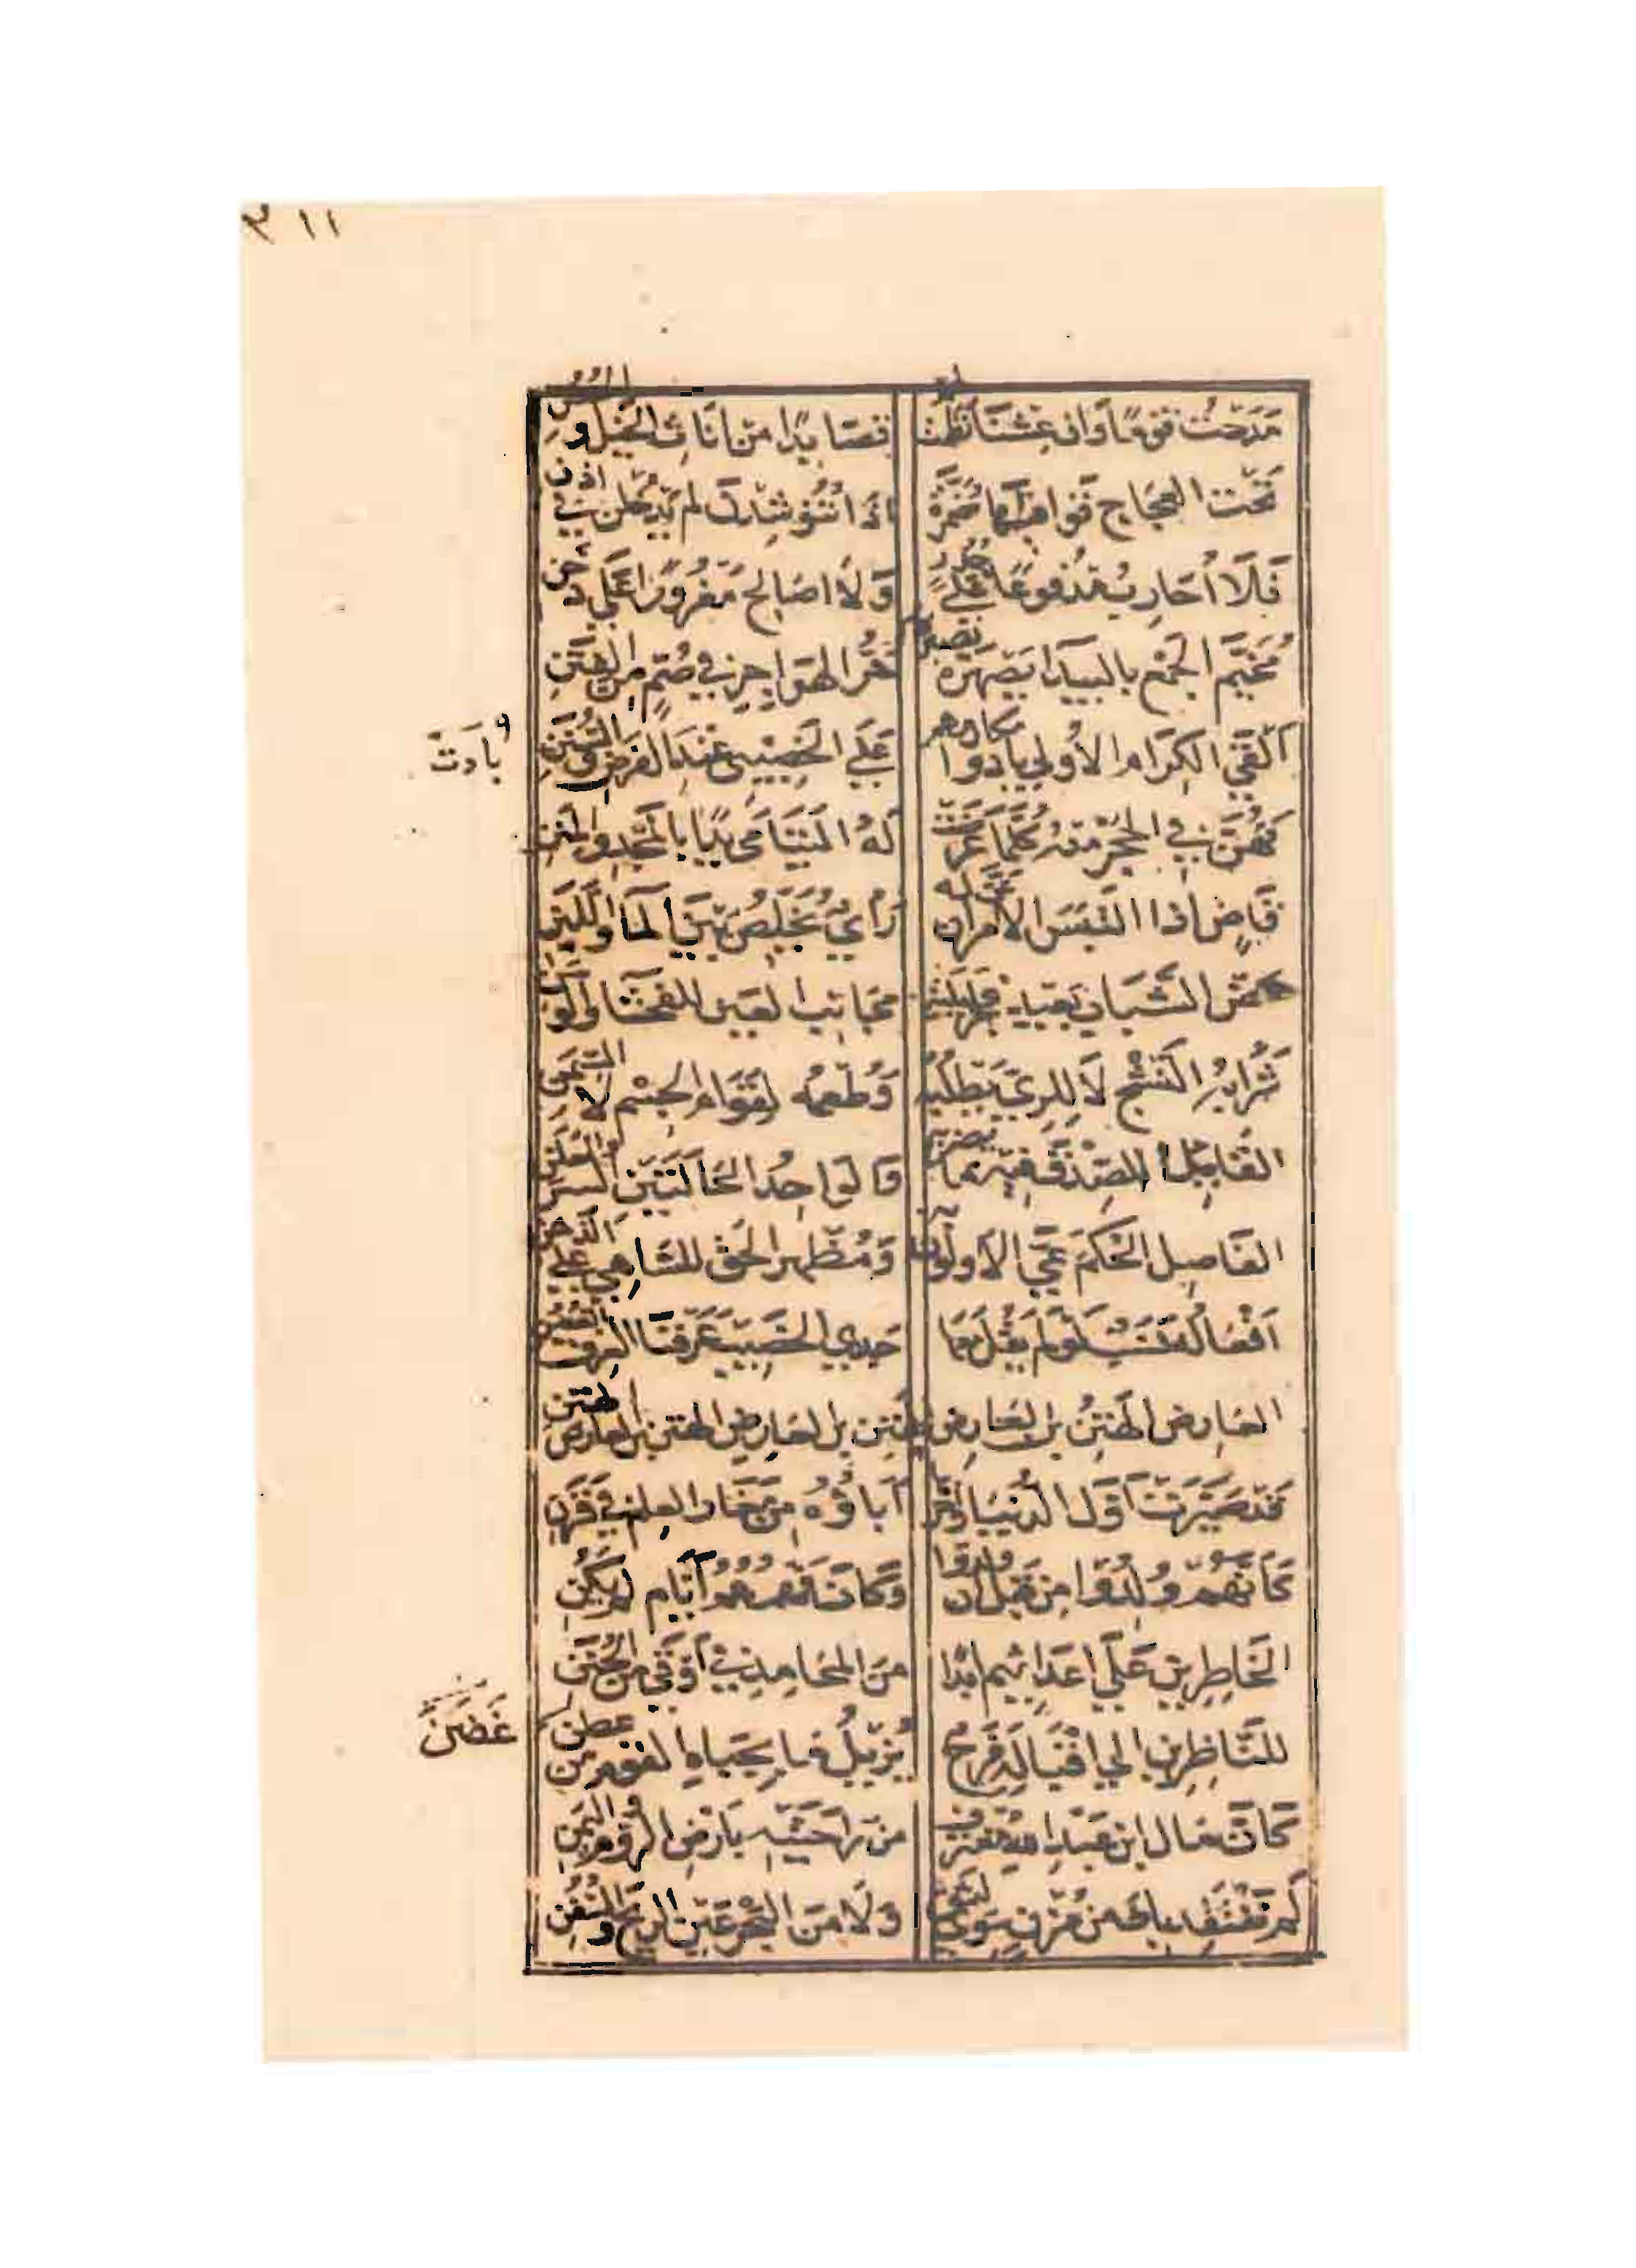 ٣١١
مدحت قوما وان عشنا نظمت لهم قصايدا من اناث الخيل والحصن
تحت العجاج قوافيها مضمرة اذا تنوشدن لم يدخلن في اذن
فلا احارب مدفوعا على جدر ولا اصالح مغرورا على دخن
مخيم الجمع بالبيدا يصهره حر الهواجر في صم من الفتن
القى الكرام الاولى بادوا مكارمهم على الخصيبي عند الفرض والسنن
بادت
فهن في الحجر منه كلما عرضت له اليتامى بدا بالمجد والمنن
قاض اذا التبس الامران عن له راي يخلص بين الما واللبن
غض الشباب بعيد فجر ليلته مجانب العين للفحشا والوسن
شرابه النشح لا للري يطلبه وطعمه لقوام الجسم لا السمن
القايل الصدق فيه ما يضر به والواحد الحالتين السر والعلن
الفاصل الحكم عي الاولون به ومظهر الحق للساهي على الذهن
افعاله نسب لو لم يقل معها جدي الخصيب عرفنا العرق بالغصن
العارض الهتن بن العارض الهتن بن العارض الهتن بن العارض الهتن
قد صيرت اول الدنيا واخرها اباؤه من مغار العلم في قرن
كانهم ولدوا من قبل ان ولدوا وكان فهمهم ايام لم يكن
الخاطرين على اعدايهم ابدا من المحامد في اوقى من الجنن
للناظرين الى اقباله فرح يزيل ما بجباه القوم من غضن
غضن
كان مال ابن عبد الله مغترف من راحتيه بارض الروم واليمن
لم نفتقد بك من مزن سوى لثق ولا من البحر غير الريح والسفن